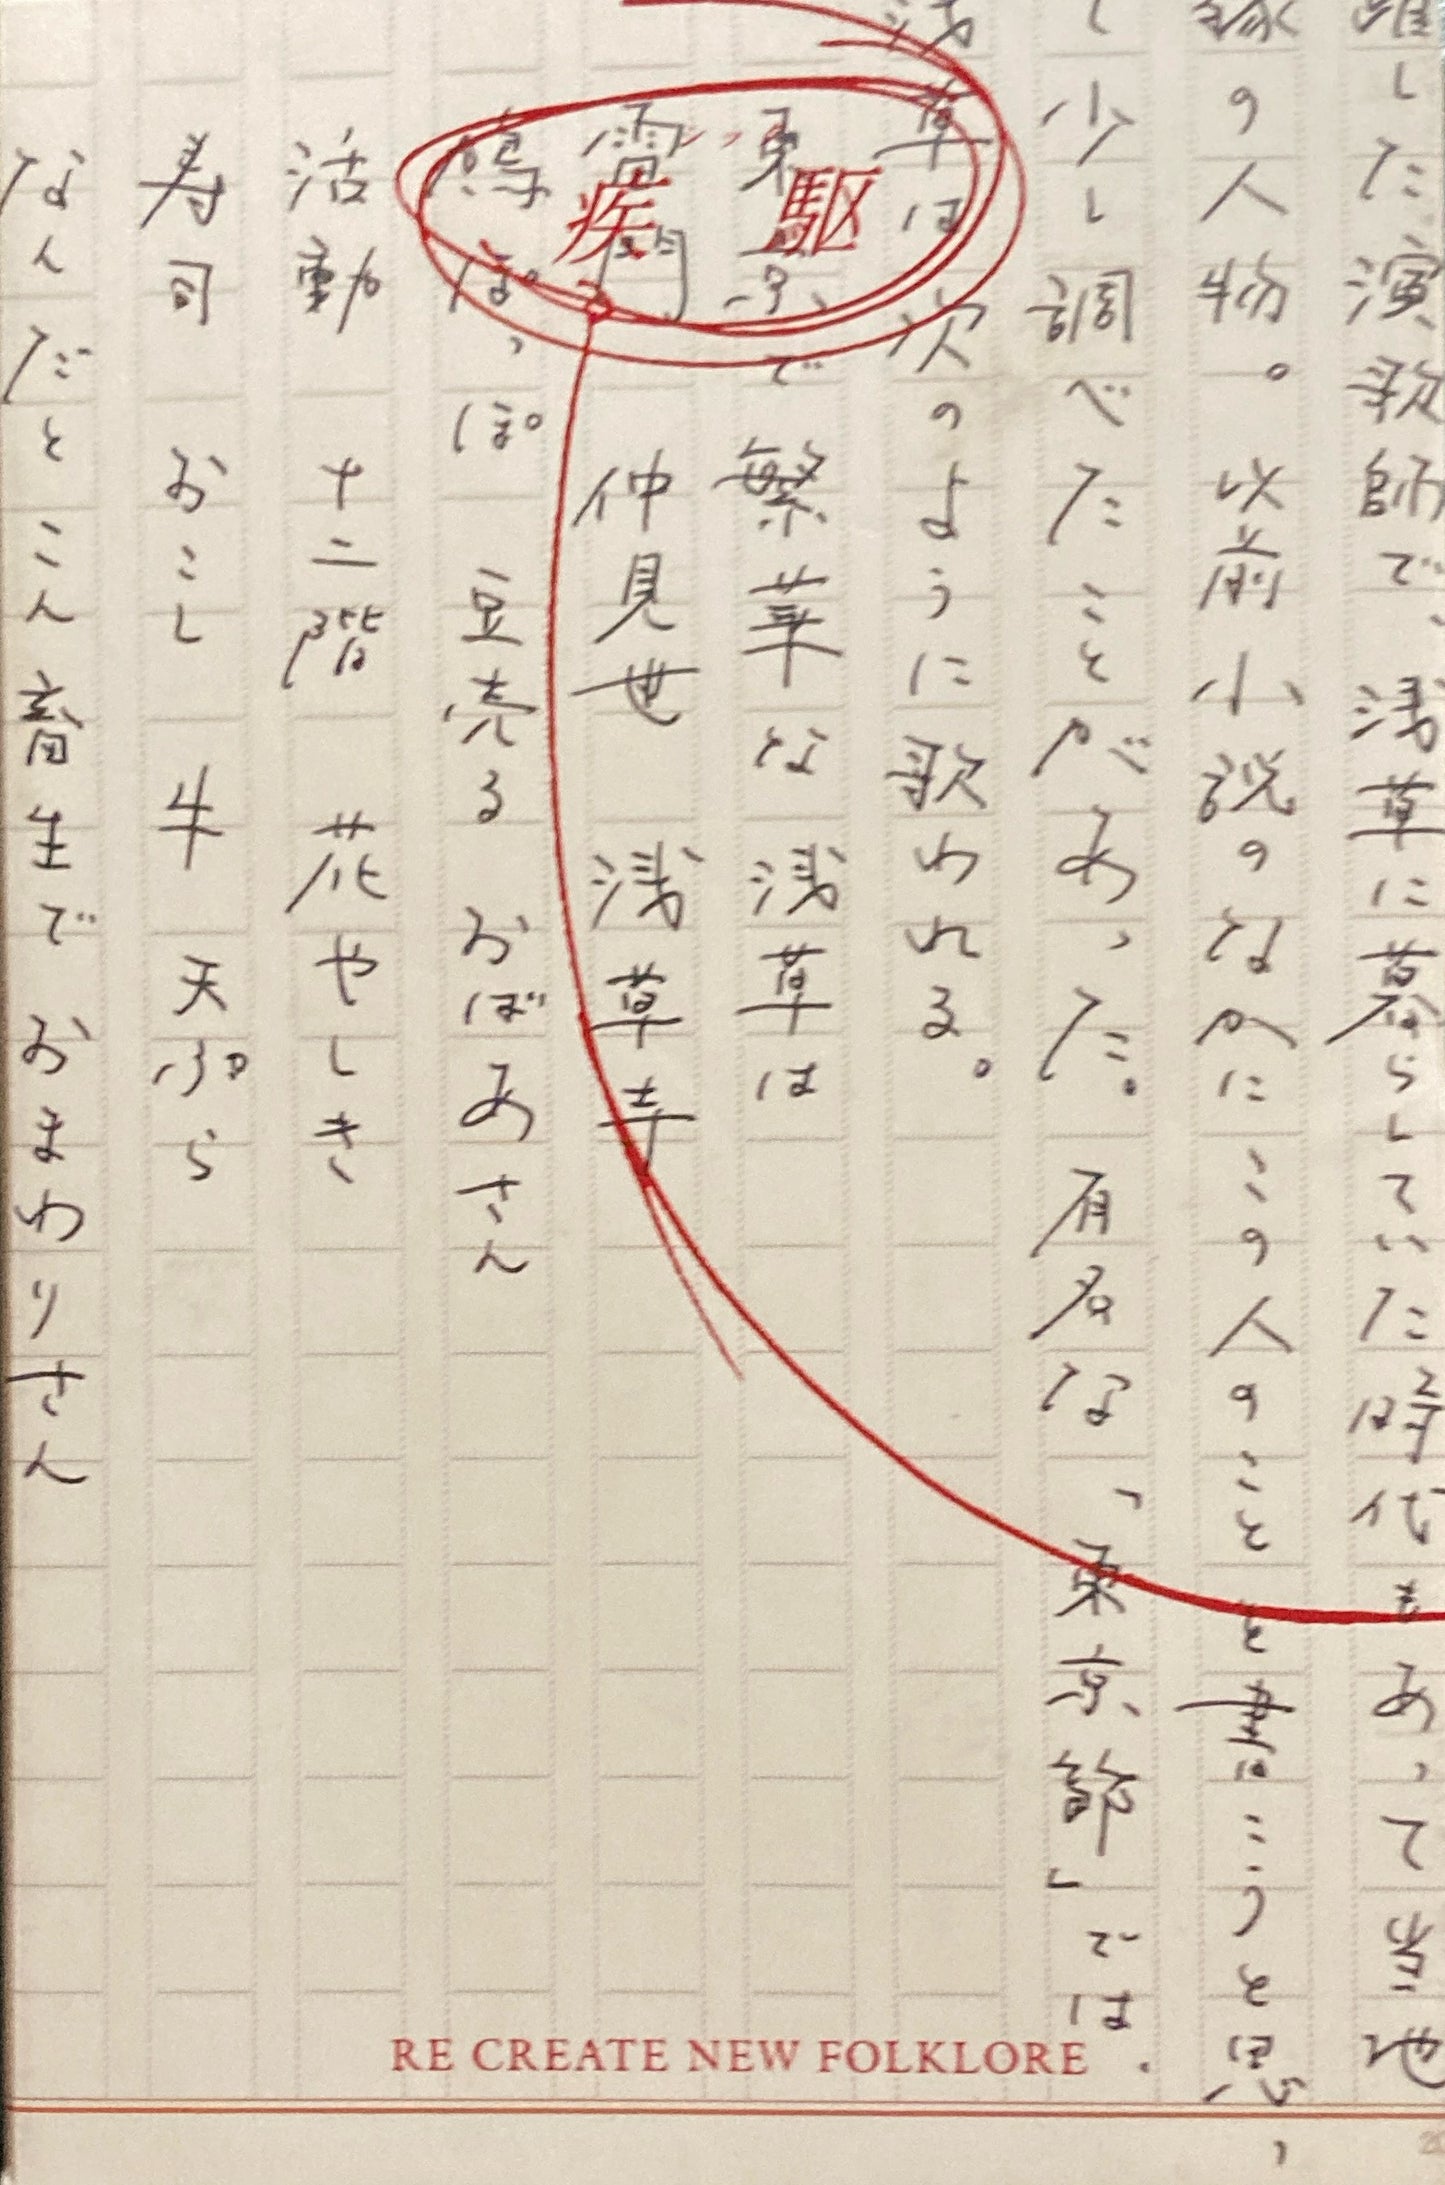 した演歌師で、浅草に暮らしていた時代もあって当地
縁の人物。以前小説のなかにこの人のことを書こうと思っ
て少し調べたことがあった。有名な「東京節」では、
浅草は次のように歌われる。
東京で 繁華な 浅草は
雷門 仲見世 浅草寺
鳩ぽっぽ 豆売る おばあさん
活動 十二階 花やしき
寿司 おこし 牛 天ぷら
なんだとこん畜生で おまわりさん
疾駆
RE CREATE NEW FOLKLORE